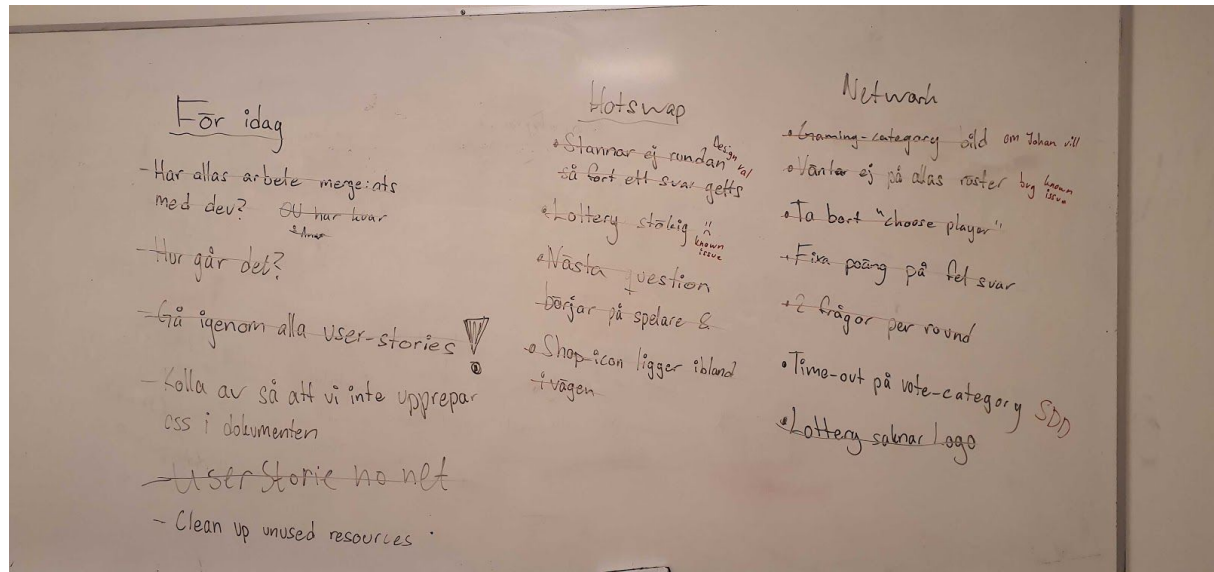 För idag
- Har allas arbete merge:ats
med dev? GU har kvar
- Hur går det?
- Gå igenom alla user-stories!
- Kolla av så att vi inte upprepar
oss i dokumenten
- User Storie no net
- Clean up unused resources
Hotswap
• Stannar ej rundan Design val
så fort ett svar getts
• Lottery stökig known issue
• Nästa question
börjar på spelare &
• Shop-icon ligger ibland
i vägen
Network
• Gaming-category bild om Johan vill
• Väntar ej på allas röster bug known issue
• Ta bort "choose player"
• Fixa poäng på fel svar
• 2 frågor per round
• Time-out på vote-category SDD
• Lottery saknar Logo